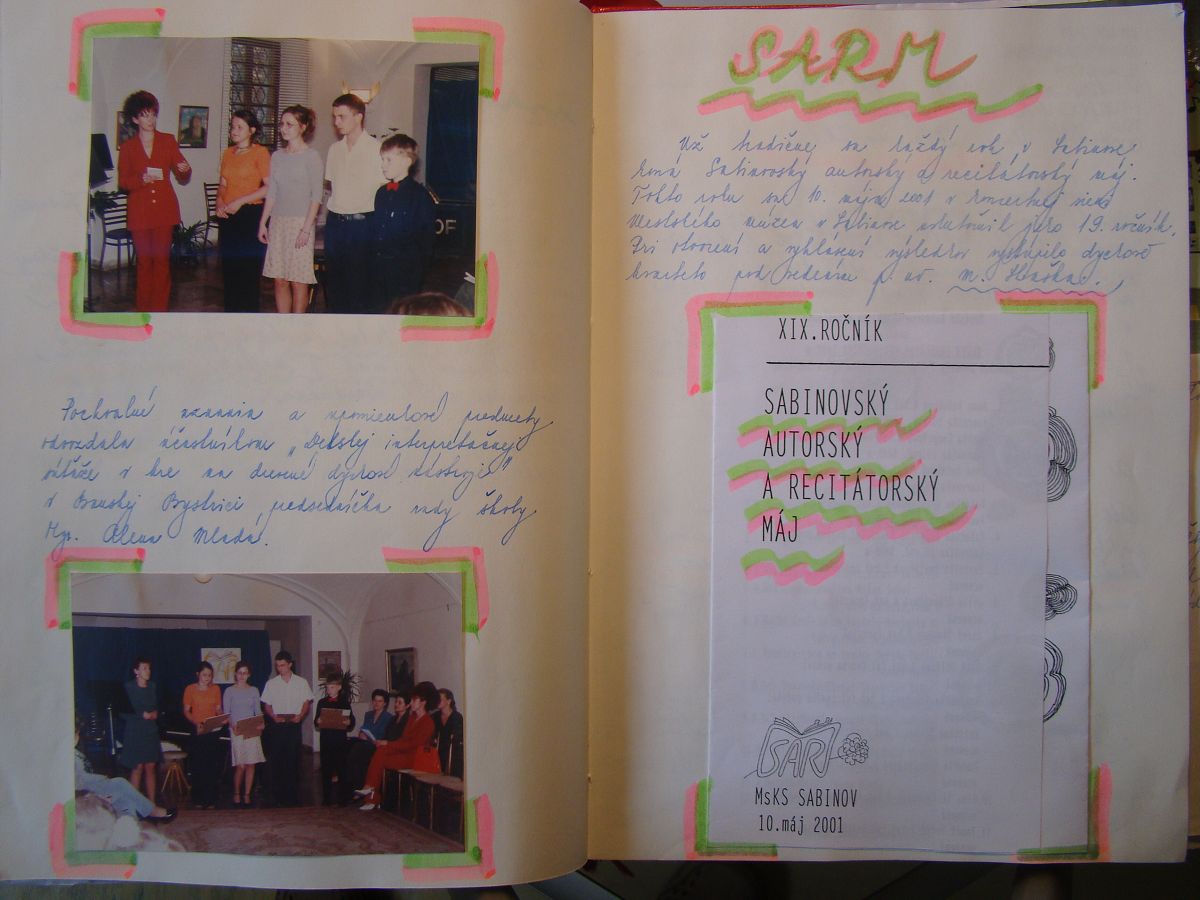 Pochvalné uznania a upomienkové predmety
odovzdala účastníkom „Detskej interpretačnej
súťaže v hre na drevené dychové nástroje"
v Banskej Bystrici, predsedníčka rady školy
Mgr. Alena Mladá.
SARM
Už tradične sa každý rok v Sabinove
koná Sabinovský autorský a recitátorský máj.
Tohto roku sa 10. mája 2001 v koncertnej sieni
Mestského múzea v Sabinove uskutočnil jeho 19. ročník.
Pri otvorení a vyhlásení výsledkov vystúpilo dychové
kvarteto pod vedením p. uč. M.
XIX.ROČNÍK
SABINOVSKÝ
AUTORSKÝ
A RECITÁTORSKÝ
MÁJ
MsKS SABINOV
10.máj 2001